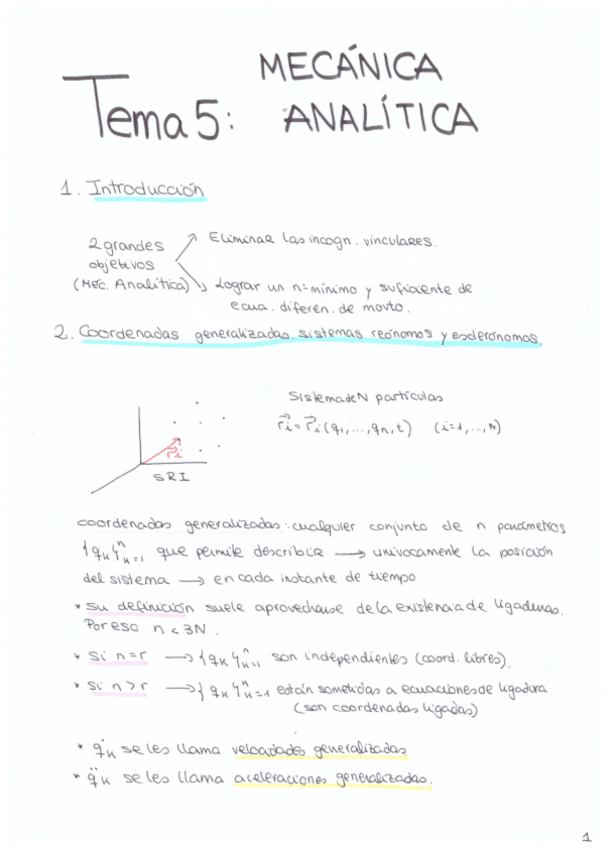 MECÁNICA
Tema 5: ANALÍTICA
1. Introducción
2 grandes objetivos (Mec. Analítica)
↗ Eliminar las incogn. vinculares.
↘ Lograr un nº mínimo y suficiente de
ecua. diferen. de movto.
2. Coordenadas generalizadas. sistemas reónomos y esclerónomos.
Sistema de N partículas
r⃗i = r⃗i (q1, ..., qn, t) (i=1, ..., N)
r⃗i
SRI
coordenadas generalizadas: cualquier conjunto de n parámetros
{qk}ⁿk=1 que permite describir → univocamente la posición
del sistema → en cada instante de tiempo
* su definición suele aprovecharse de la existencia de ligaduras.
Por eso n < 3N.
* si n=r → {qk}ⁿk=1 son independientes (coord. libres).
* si n>r → {qk}ⁿk=1 están sometidas a ecuaciones de ligadura
(son coordenadas ligadas)
* q̇k se les llama velocidades generalizadas
* q̈k se les llama aceleraciones generalizadas.
1